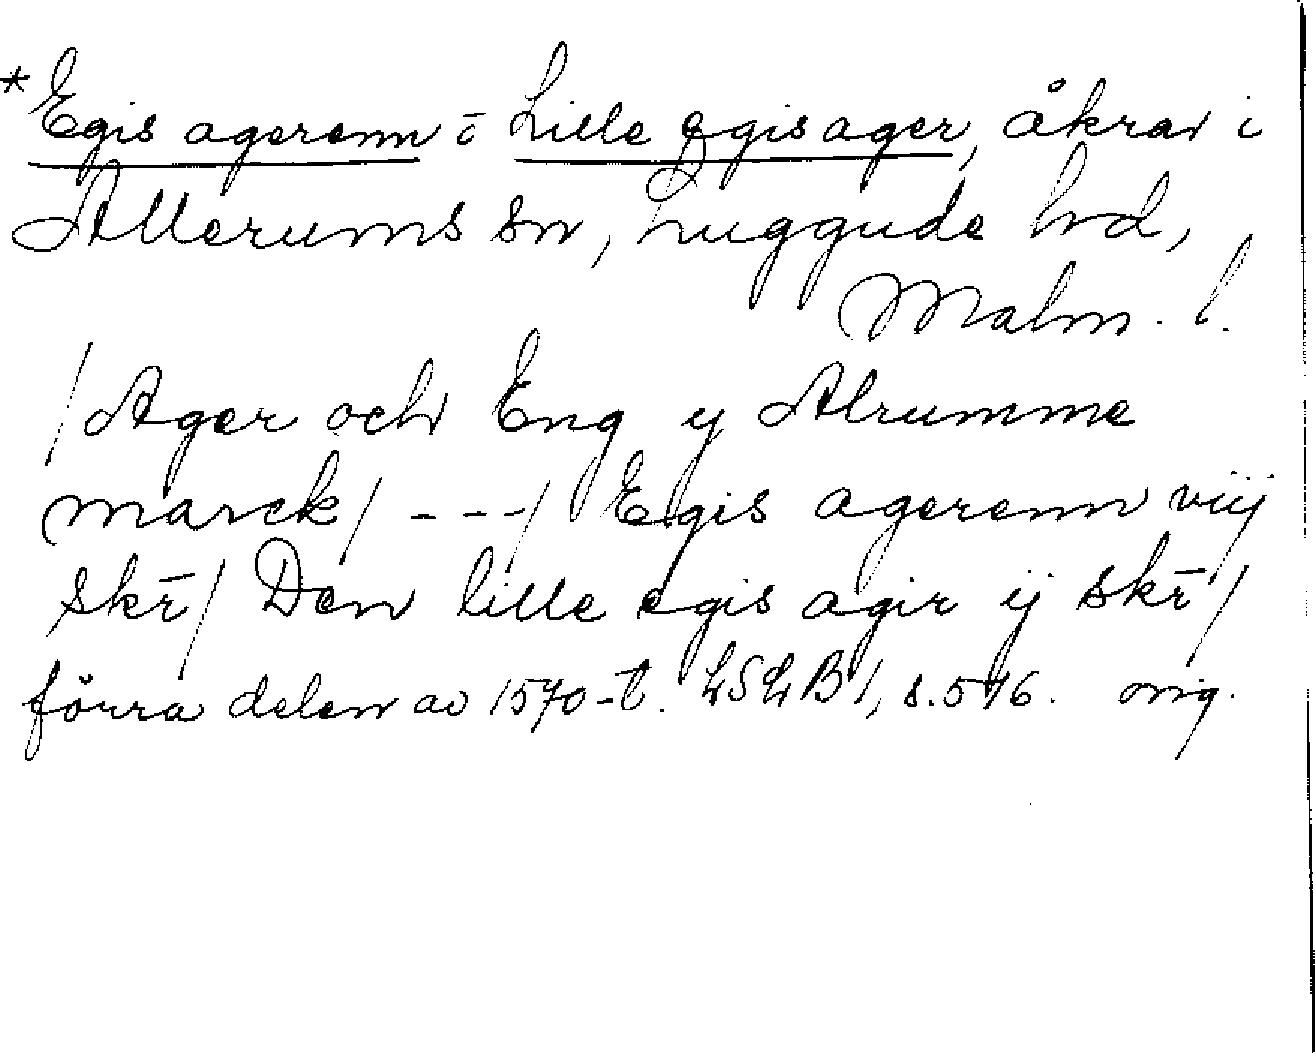 *Egis agerenn ɔ: Lille egis ager, åkrar i
Allerums sn, Luggude hd,
Malm. l.
/Ager och Eng y Alrumme
marck/ - - -/ Egis agerenn viij
skr̄/ Den lille egis agir ij skr̄/
förra delen av 1570-t. LSLB 1, s. 546. orig.